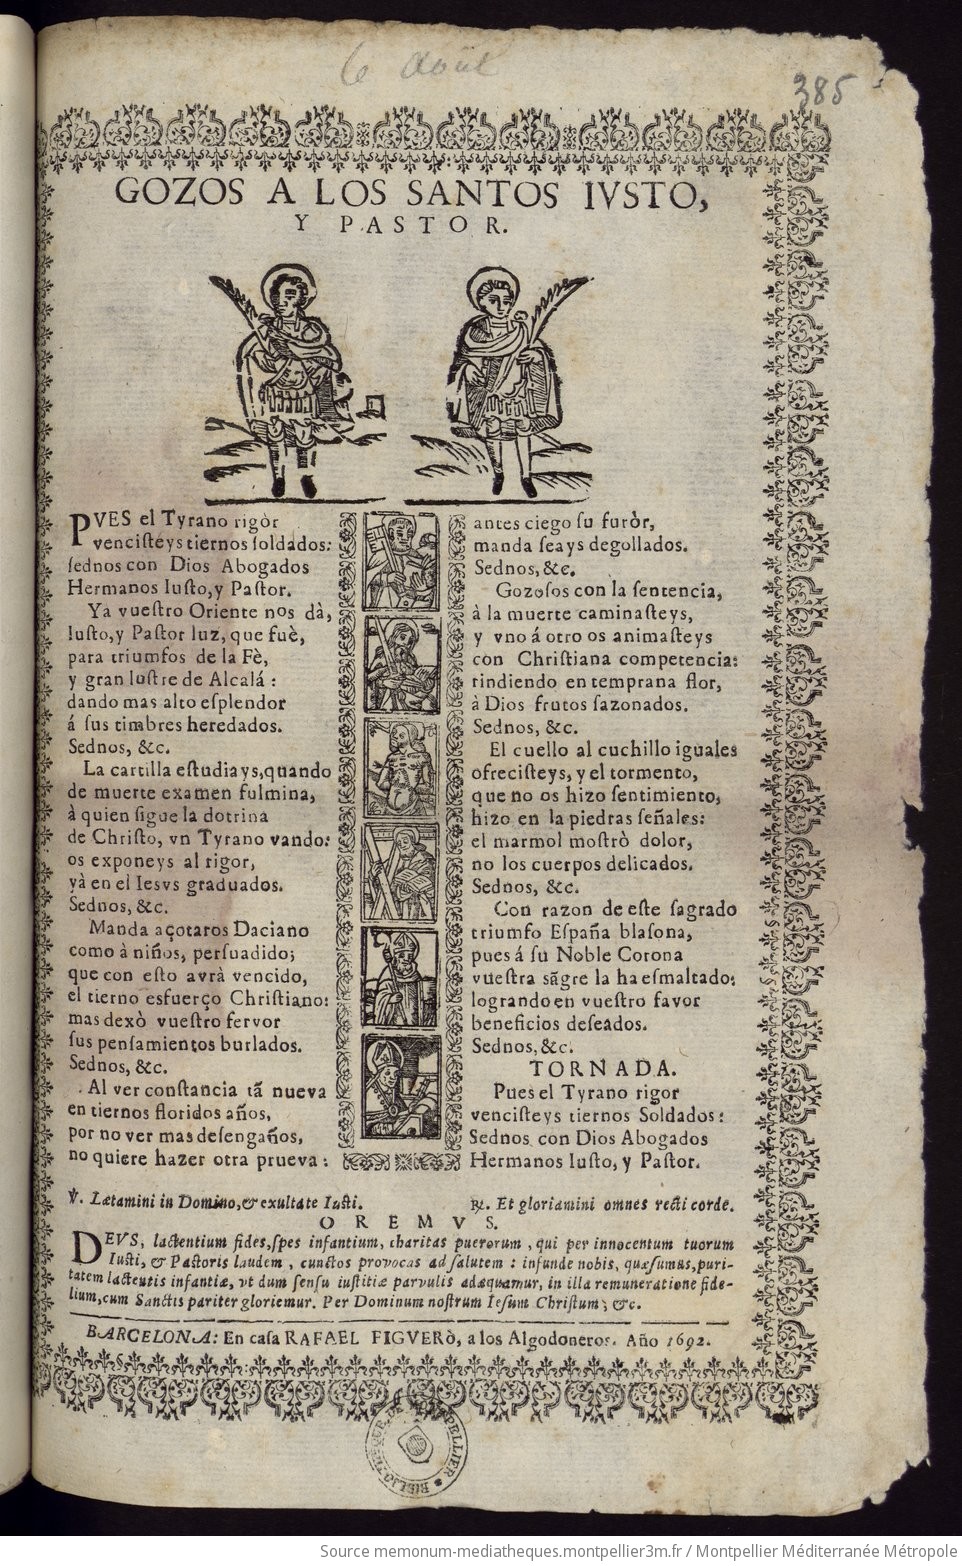 6 Août
385
GOZOS A LOS SANTOS IVSTO,
Y PASTOR.
PVES el Tyrano rigòr
venciſteys tiernos ſoldados:
ſednos con Dios Abogados
Hermanos Iuſto, y Paſtor.
Ya vueſtro Oriente nos dà,
Iuſto, y Paſtor luz, que fuè,
para triumfos de la Fè,
y gran luſtre de Alcalá :
dando mas alto eſplendor
á ſus timbres heredados.
Sednos, &c.
La cartilla eſtudiays, quando
de muerte examen fulmina,
à quien ſigue la dotrina
de Chriſto, vn Tyrano vando:
os exponeys al rigor,
yà en el Iesvs graduados.
Sednos, &c.
Manda açotaros Daciano
como à niños, perſuadido;
que con eſto avrà vencido,
el tierno esfuerço Chriſtiano:
mas dexò vueſtro fervor
ſus penſamientos burlados.
Sednos, &c.
Al ver constancia tã nueva
en tiernos floridos años,
por no ver mas deſengaños,
no quiere hazer otra prueva :
antes ciego ſu furòr,
manda ſeays degollados.
Sednos, &c.
Gozoſos con la ſentencia,
à la muerte caminaſteys,
y vno á otro os animaſteys
con Chriſtiana competencia:
rindiendo en temprana flor,
à Dios frutos ſazonados.
Sednos, &c.
El cuello al cuchillo iguales
ofreciſteys, y el tormento,
que no os hizo ſentimiento,
hizo en la piedras ſeñales:
el marmol moſtrò dolor,
no los cuerpos delicados.
Sednos, &c.
Con razon de eſte ſagrado
triumfo Eſpaña blaſona,
pues á ſu Noble Corona
vueſtra sãgre la ha eſmaltado:
logrando en vueſtro favor
beneficios deſeados.
Sednos, &c.
TORNADA.
Pues el Tyrano rigor
venciſteys tiernos Soldados:
Sednos con Dios Abogados
Hermanos Iuſto, y Paſtor.
℣. Lætamini in Domino, & exultate Iuſti.
℟. Et gloriamini omnes recti corde.
OREMVS.
DEVS, lactentium fides, ſpes infantium, charitas puerorum, qui per innocentum tuorum
Iuſti, & Paſtoris laudem, cunctos provocas ad ſalutem : infunde nobis, quæſumus, puri-
tatem lacteutis infantiæ, vt dum ſenſu iuſtitiæ parvulis adæquamur, in illa remuneratione fide-
lium, cum Sanctis pariter gloriemur. Per Dominum noſtrum Ieſum Chriſtum, &c.
BARCELONA: En caſa RAFAEL FIGVERò, a los Algodoneros. Año 1692.
Source memonum-mediatheques.montpellier3m.fr / Montpellier Méditerranée Métropole